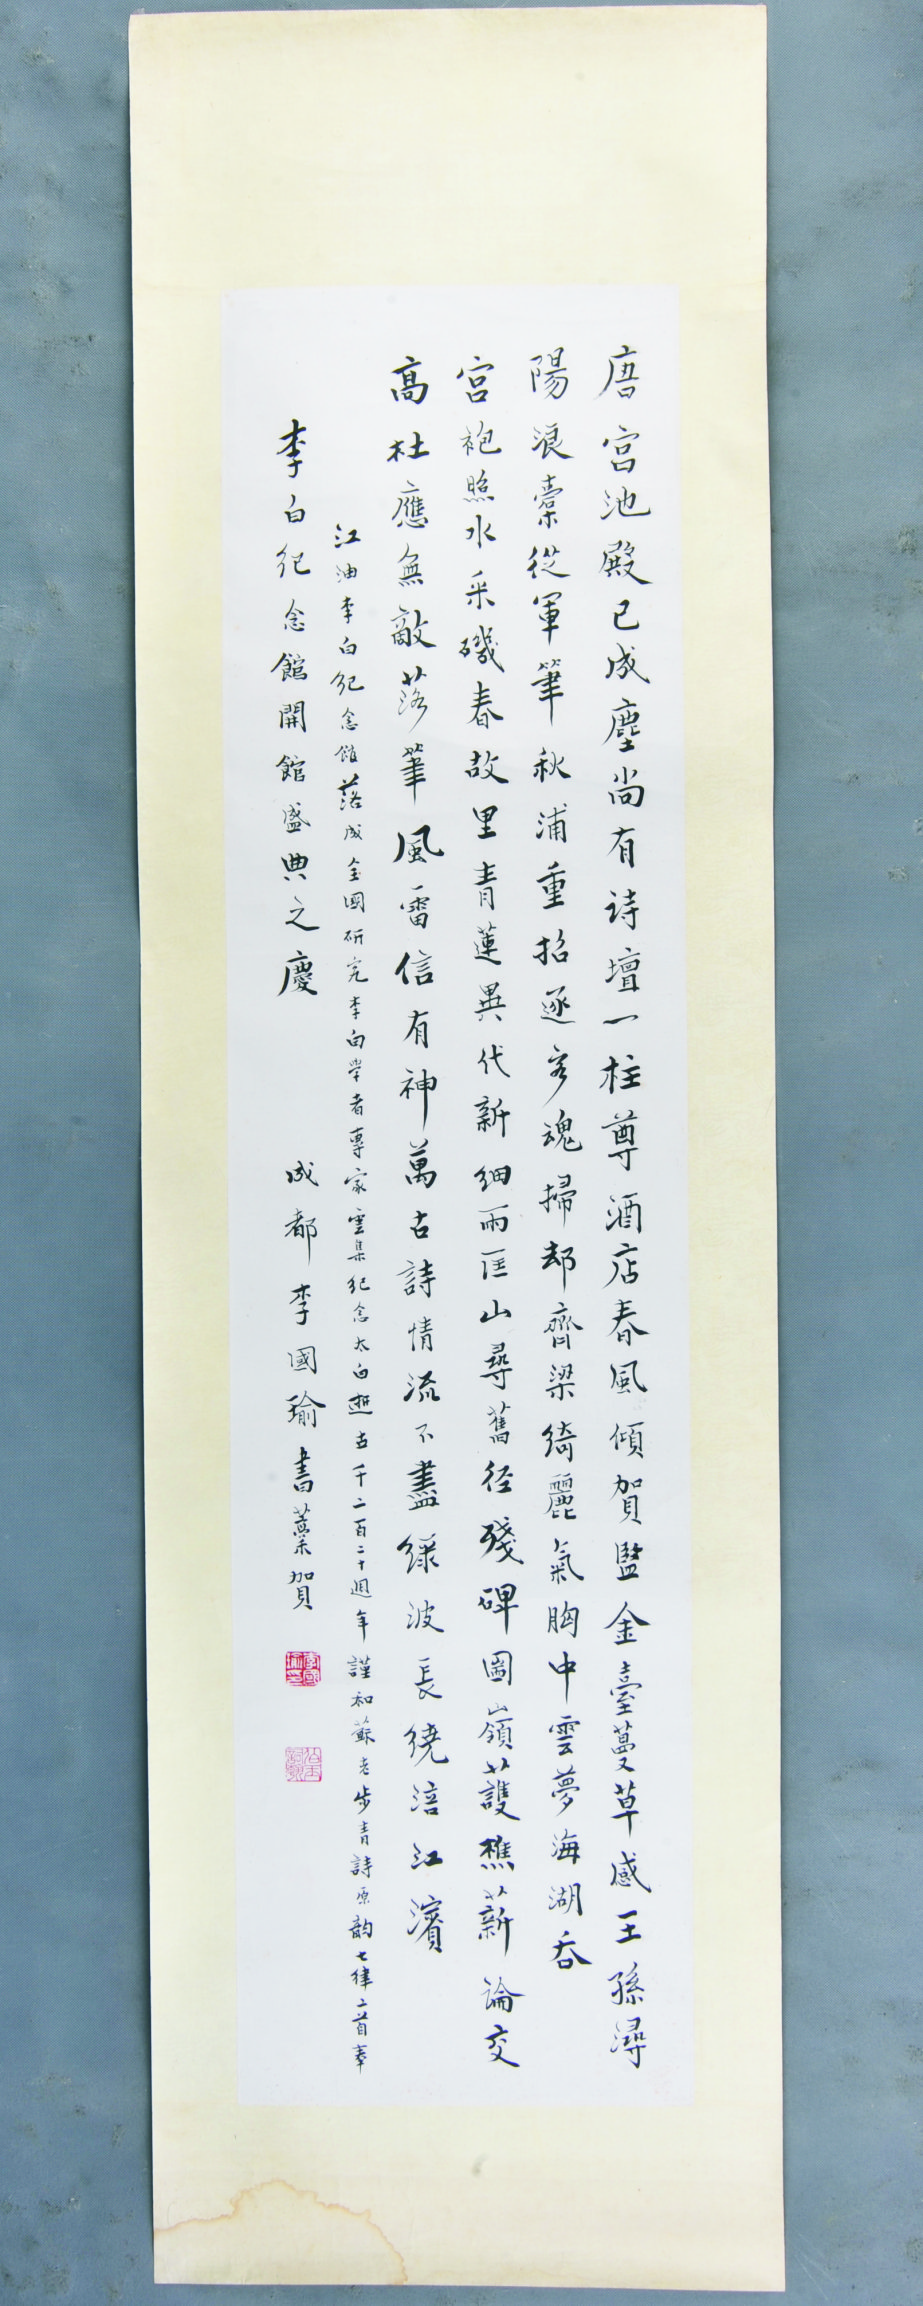 唐宮池殿已成塵尚有詩壇一柱尊酒店春風傾賀監金臺蔓草感王孫潯
陽浪橐從軍筆秋浦重招逐客魂掃却齊梁綺麗氣胸中雲夢海湖吞
宮袍照水采磯春故里青蓮異代新細雨匡山尋舊徑殘碑圌嶺護樵薪論交
高杜應無敵落筆風雷信有神萬古詩情流不盡綠波長繞涪江濱
江油李白紀念館落成全國研究李白學者專家雲集紀念太白逝古千二百二十週年謹和蘇老步青詩原韵七律二首奉
李白紀念館開館盛典之慶
成都李國瑜書藁賀
李國瑜